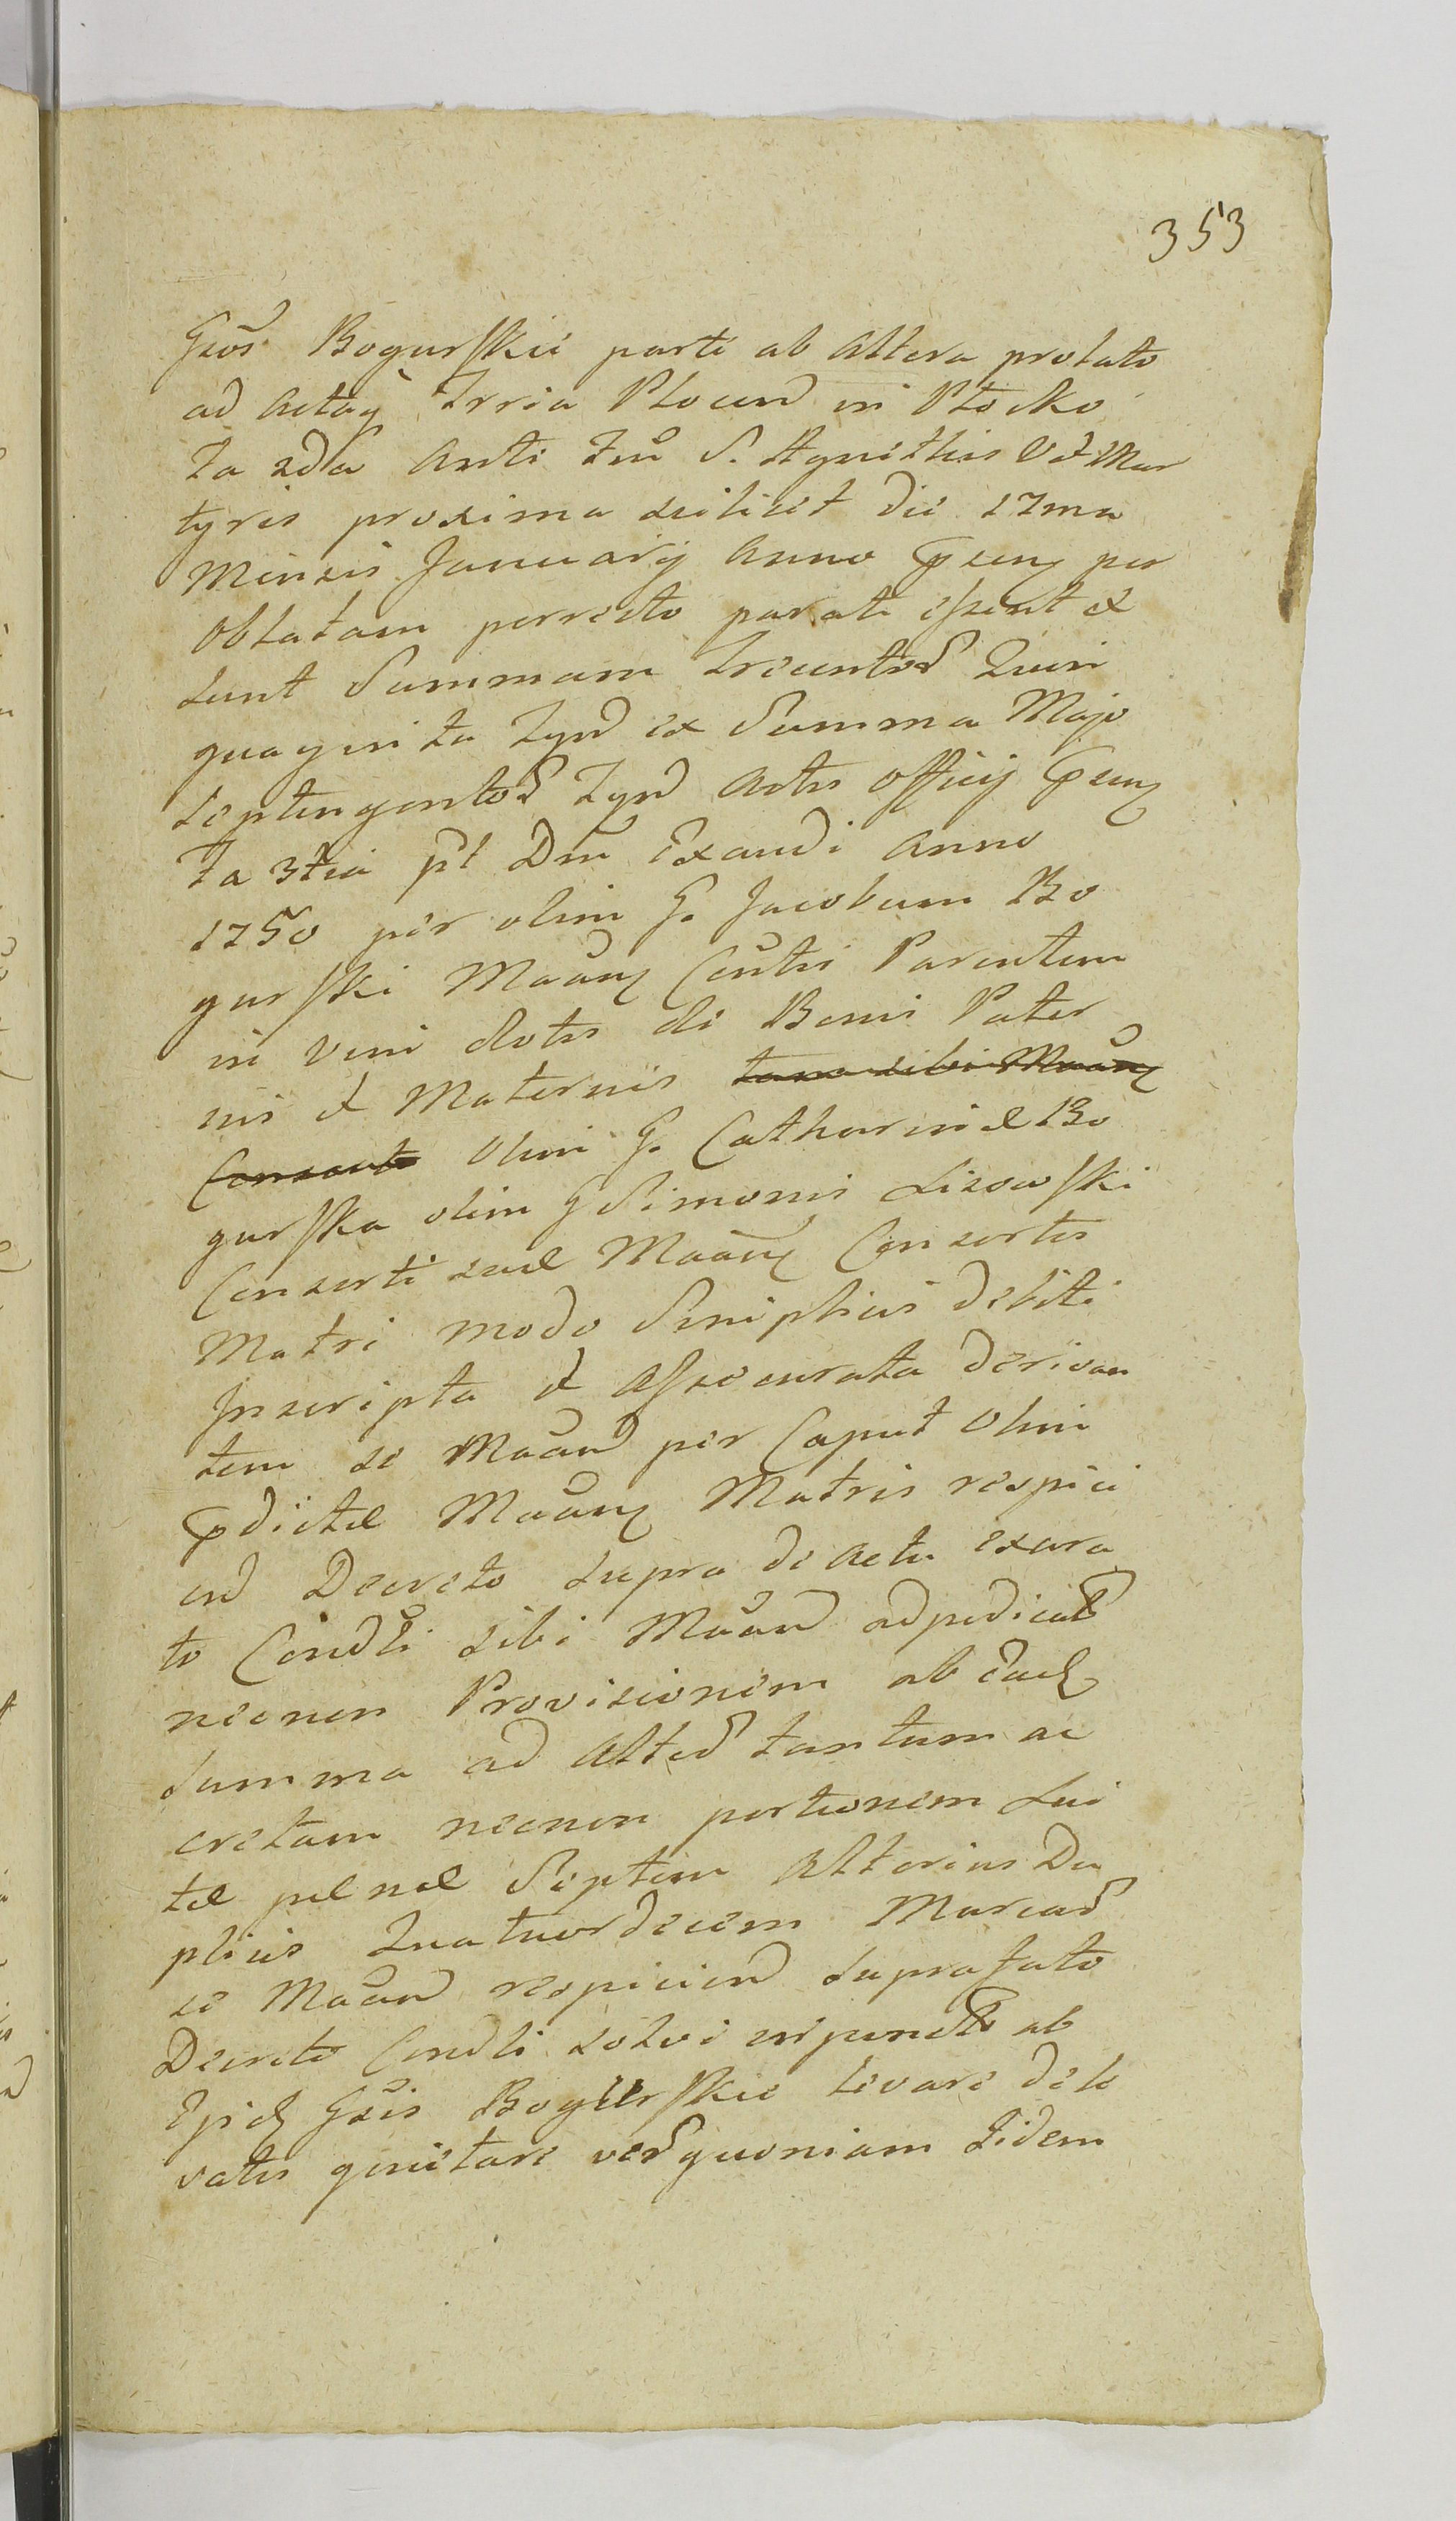 353
Gsos Bogurskie parte ab altera prolato
ad acta Trria Plocen in Plocko
Fa 2da ante Fm S. Agnethis V et Mar
tyris proxima scilicet die 17ma
Mensis January Anno psenq per
Oblatam perrecto parati essent et
sunt Summam Trecentos Quin
quaginta Tyn ex Summa Majo
Septingentos Tyn actis officij psenq
Fa 3tia pt Dm Exaudi anno
1750 per olim G. Jacobum Bo
gurski Maanq Contis Parentem
in vim dotis de Bonis Pater
nis et Maternis tam sibi Maanq
Consorte Olim G. Catharinæ Bo
gurska olim G Simonis Lisowski
Consorti suæ Maanq Consortis
Matri modo Simplicis debiti
Inscripta et assecurata derivan
tem se Maan per Caput Olim
pdictæ Maanq Matris respici
en Decreto supra de actu exara
to Condli sibi Maan adpedicat
necnon Provisionem ab eadq
Summa ad alted tantum ac
cretam necnon portionem Lui
tæ pænæ Septem alterius Du
plicis Quatuordecim Marcas
se Maan respicien suprafato
Decreto Condli solvi in punctis ab
Ijsdq Gsis Bogurskie levare dele
vatis quietare ves quoniam Iidem